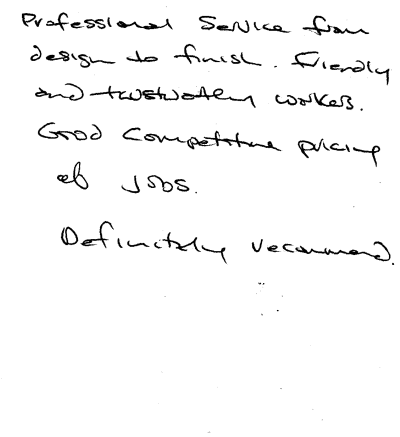 Professional Service from
design to finish. Friendly
and trustworthy workers.
Good Competitive pricing
of Jobs.
Definitely recommend.